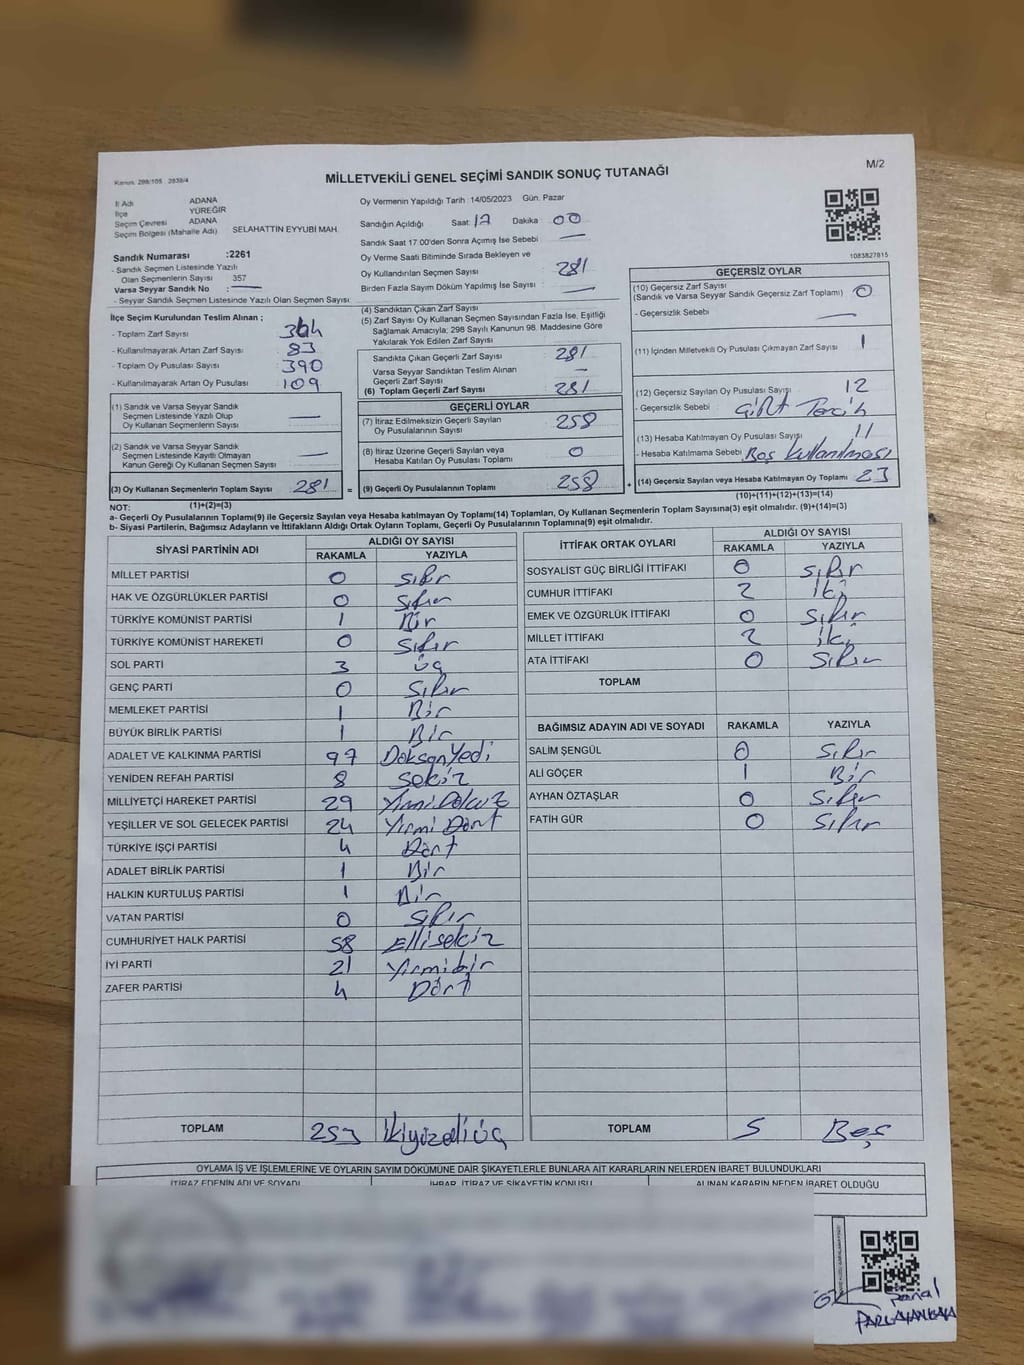 Kanun. 298/105 2839/4
MİLLETVEKİLİ GENEL SEÇİMİ SANDIK SONUÇ TUTANAĞI
M/2
İl Adı ADANA
İlçe YÜREĞİR
Seçim Çevresi ADANA
Seçim Bölgesi (Mahalle Adı) SELAHATTİN EYYUBİ MAH.
Sandık Numarası :2261
- Sandık Seçmen Listesinde Yazılı
Olan Seçmenlerin Sayısı 357
Varsa Seyyar Sandık No : —
- Seyyar Sandık Seçmen Listesinde Yazılı Olan Seçmen Sayısı
Oy Vermenin Yapıldığı Tarih 14/05/2023 Gün. Pazar
Sandığın Açıldığı Saat: 17 Dakika : 00
Sandık Saat 17.00'den Sonra Açımış İse Sebebi : —
Oy Verme Saati Bitiminde Sırada Bekleyen ve
Oy Kullandırılan Seçmen Sayısı : 281
Birden Fazla Sayım Döküm Yapılmış İse Sayısı : —
1083827815
İlçe Seçim Kurulundan Teslim Alınan ;
- Toplam Zarf Sayısı : 364
- Kullanılmayarak Artan Zarf Sayısı : 83
- Toplam Oy Pusulası Sayısı : 390
- Kullanılmayarak Artan Oy Pusulası : 109
(1) Sandık ve Varsa Seyyar Sandık
Seçmen Listesinde Yazılı Olup
Oy Kullanan Seçmenlerin Sayısı : —
(2) Sandık ve Varsa Seyyar Sandık
Seçmen Listesinde Kayıtlı Olmayan
Kanun Gereği Oy Kullanan Seçmen Sayısı : —
(3) Oy Kullanan Seçmenlerin Toplam Sayısı : 281
(4) Sandıktan Çıkan Zarf Sayısı
(5) Zarf Sayısı Oy Kullanan Seçmen Sayısından Fazla İse, Eşitliği
Sağlamak Amacıyla; 298 Sayılı Kanunun 98. Maddesine Göre
Yakılarak Yok Edilen Zarf Sayısı
Sandıkta Çıkan Geçerli Zarf Sayısı : 281
Varsa Seyyar Sandıktan Teslim Alınan
Geçerli Zarf Sayısı : —
(6) Toplam Geçerli Zarf Sayısı : 281
GEÇERLİ OYLAR
(7) İtiraz Edilmeksizin Geçerli Sayılan
Oy Pusulalarının Sayısı : 258
(8) İtiraz Üzerine Geçerli Sayılan veya
Hesaba Katılan Oy Pusulası Toplamı : 0
= (9) Geçerli Oy Pusulalarının Toplamı : 258 +
GEÇERSİZ OYLAR
(10) Geçersiz Zarf Sayısı
(Sandık ve Varsa Seyyar Sandık Geçersiz Zarf Toplamı) : 0
- Geçersizlik Sebebi : —
(11) İçinden Milletvekili Oy Pusulası Çıkmayan Zarf Sayısı : 1
(12) Geçersiz Sayılan Oy Pusulası Sayısı : 12
- Geçersizlik Sebebi : Çift Tercih
(13) Hesaba Katılmayan Oy Pusulası Sayısı : 11
- Hesaba Katılmama Sebebi : Boş Kullanılması
(14) Geçersiz Sayılan veya Hesaba Katılmayan Oy Toplamı : 23
NOT: (1)+(2)=(3) (10)+(11)+(12)+(13)=(14)
a- Geçerli Oy Pusulalarının Toplamı(9) ile Geçersiz Sayılan veya Hesaba katılmayan Oy Toplamı(14) Toplamları, Oy Kullanan Seçmenlerin Toplam Sayısına(3) eşit olmalıdır. (9)+(14)=(3)
b- Siyasi Partilerin, Bağımsız Adayların ve İttifakların Aldığı Ortak Oyların Toplamı, Geçerli Oy Pusulalarının Toplamına(9) eşit olmalıdır.
SİYASİ PARTİNİN ADI ALDIĞI OY SAYISI
RAKAMLA YAZIYLA
MİLLET PARTİSİ 0 sıfır
HAK VE ÖZGÜRLÜKLER PARTİSİ 0 sıfır
TÜRKİYE KOMÜNİST PARTİSİ 1 Bir
TÜRKİYE KOMÜNİST HAREKETİ 0 sıfır
SOL PARTİ 3 üç
GENÇ PARTİ 0 sıfır
MEMLEKET PARTİSİ 1 Bir
BÜYÜK BİRLİK PARTİSİ 1 Bir
ADALET VE KALKINMA PARTİSİ 97 DoksanYedi
YENİDEN REFAH PARTİSİ 8 sekiz
MİLLİYETÇİ HAREKET PARTİSİ 29 YirmiDokuz
YEŞİLLER VE SOL GELECEK PARTİSİ 24 Yirmi Dört
TÜRKİYE İŞÇİ PARTİSİ 4 Dört
ADALET BİRLİK PARTİSİ 1 Bir
HALKIN KURTULUŞ PARTİSİ 1 Bir
VATAN PARTİSİ 0 sıfır
CUMHURİYET HALK PARTİSİ 58 Ellisekiz
İYİ PARTİ 21 Yirmibir
ZAFER PARTİSİ 4 Dört
TOPLAM 253 ikiyüzelliüç
İTTİFAK ORTAK OYLARI ALDIĞI OY SAYISI
RAKAMLA YAZIYLA
SOSYALİST GÜÇ BİRLİĞİ İTTİFAKI 0 sıfır
CUMHUR İTTİFAKI 2 iki
EMEK VE ÖZGÜRLÜK İTTİFAKI 0 sıfır
MİLLET İTTİFAKI 2 iki
ATA İTTİFAKI 0 sıfır
TOPLAM
BAĞIMSIZ ADAYIN ADI VE SOYADI RAKAMLA YAZIYLA
SALİM ŞENGÜL 0 sıfır
ALİ GÖÇER 1 Bir
AYHAN ÖZTAŞLAR 0 sıfır
FATİH GÜR 0 sıfır
TOPLAM 5 Beş
OYLAMA İŞ VE İŞLEMLERİNE VE OYLARIN SAYIM DÖKÜMÜNE DAİR ŞİKAYETLERLE BUNLARA AİT KARARLARIN NELERDEN İBARET BULUNDUKLARI
İTİRAZ EDENİN ADI VE SOYADI İHBAR, İTİRAZ VE ŞİKAYETİN KONUSU ALINAN KARARIN NEDEN İBARET OLDUĞU